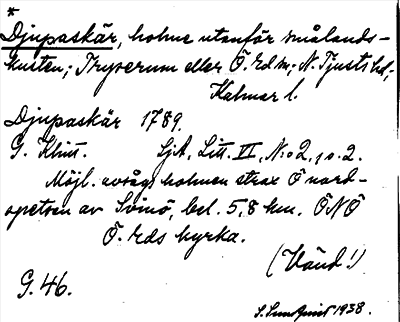 *
Djupaskär, holme utanför smålands-
kusten; Tryserum eller Ö. Ed sn; N. Tjusts hd,;
Kalmar l.
Djupaskär 1789.
G. Klint. SjA, Litt. VI, N:o 2, s. 2.
Möjl. avsågs holmen strax Ö nord-
spetsen av Svinö, bel. 5,8 km. ÖNÖ
Ö. Eds kyrka.
(Vänd!)
G. 46.
S. Lundquist 1938.